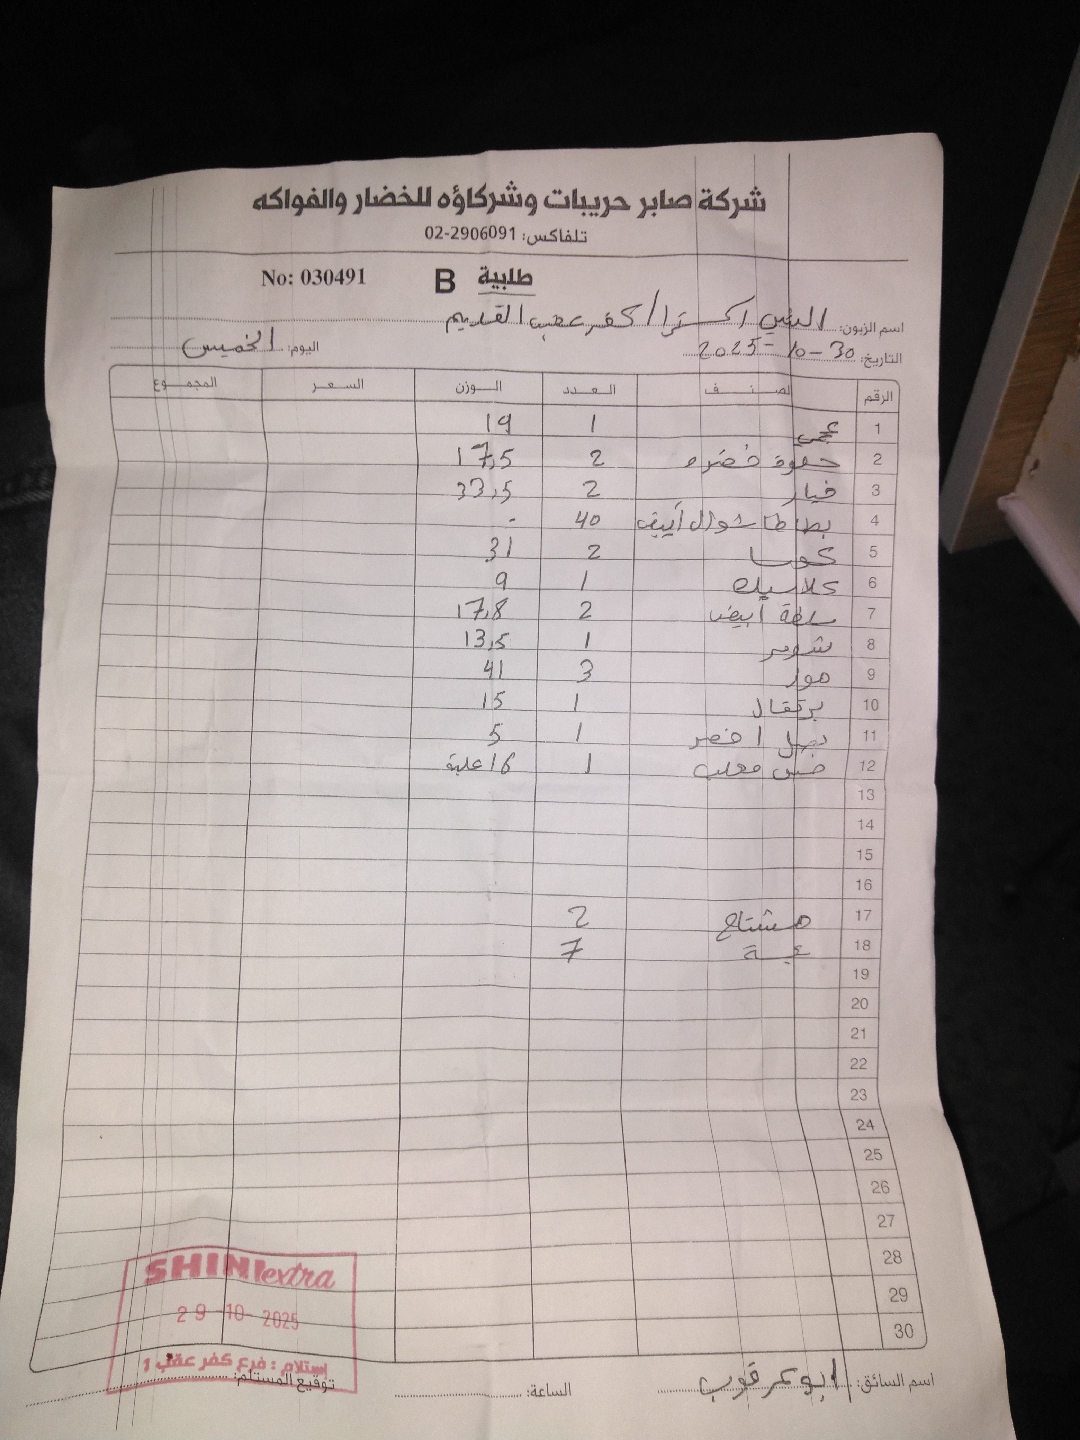 شركة صابر حريبات وشركاؤه للخضار والفواكه
تلفاكس: 02-2906091
طلبية B No: 030491
اسم الزبون: الشني اكسترا / كفر عقب القديم
التاريخ: 30-10-2025 اليوم: الخميس
الرقم الصنف العدد الوزن السعر المجموع
1 عجمي 1 19
2 حلوة خضره 2 17,5
3 خيار 2 33,5
4 بطاطا شوال أبيض 40 -
5 كوسا 2 31
6 كلاسيك 1 9
7 سلطة أبيض 2 17,8
8 1 13,5
9 موز 3 41
10 برتقال 1 15
11 بصل اخضر 1 5
12 خس معلب 1 16 علبة
13
14
15
16
17 مشتاح 2
18 7
19
20
21
22
23
24
25
26
27
28
29
30
SHINI extra
29-10-2025
إستلام: فرع كفر عقب 1
اسم السائق: ابو عرقوب الساعة: توقيع المستلم: